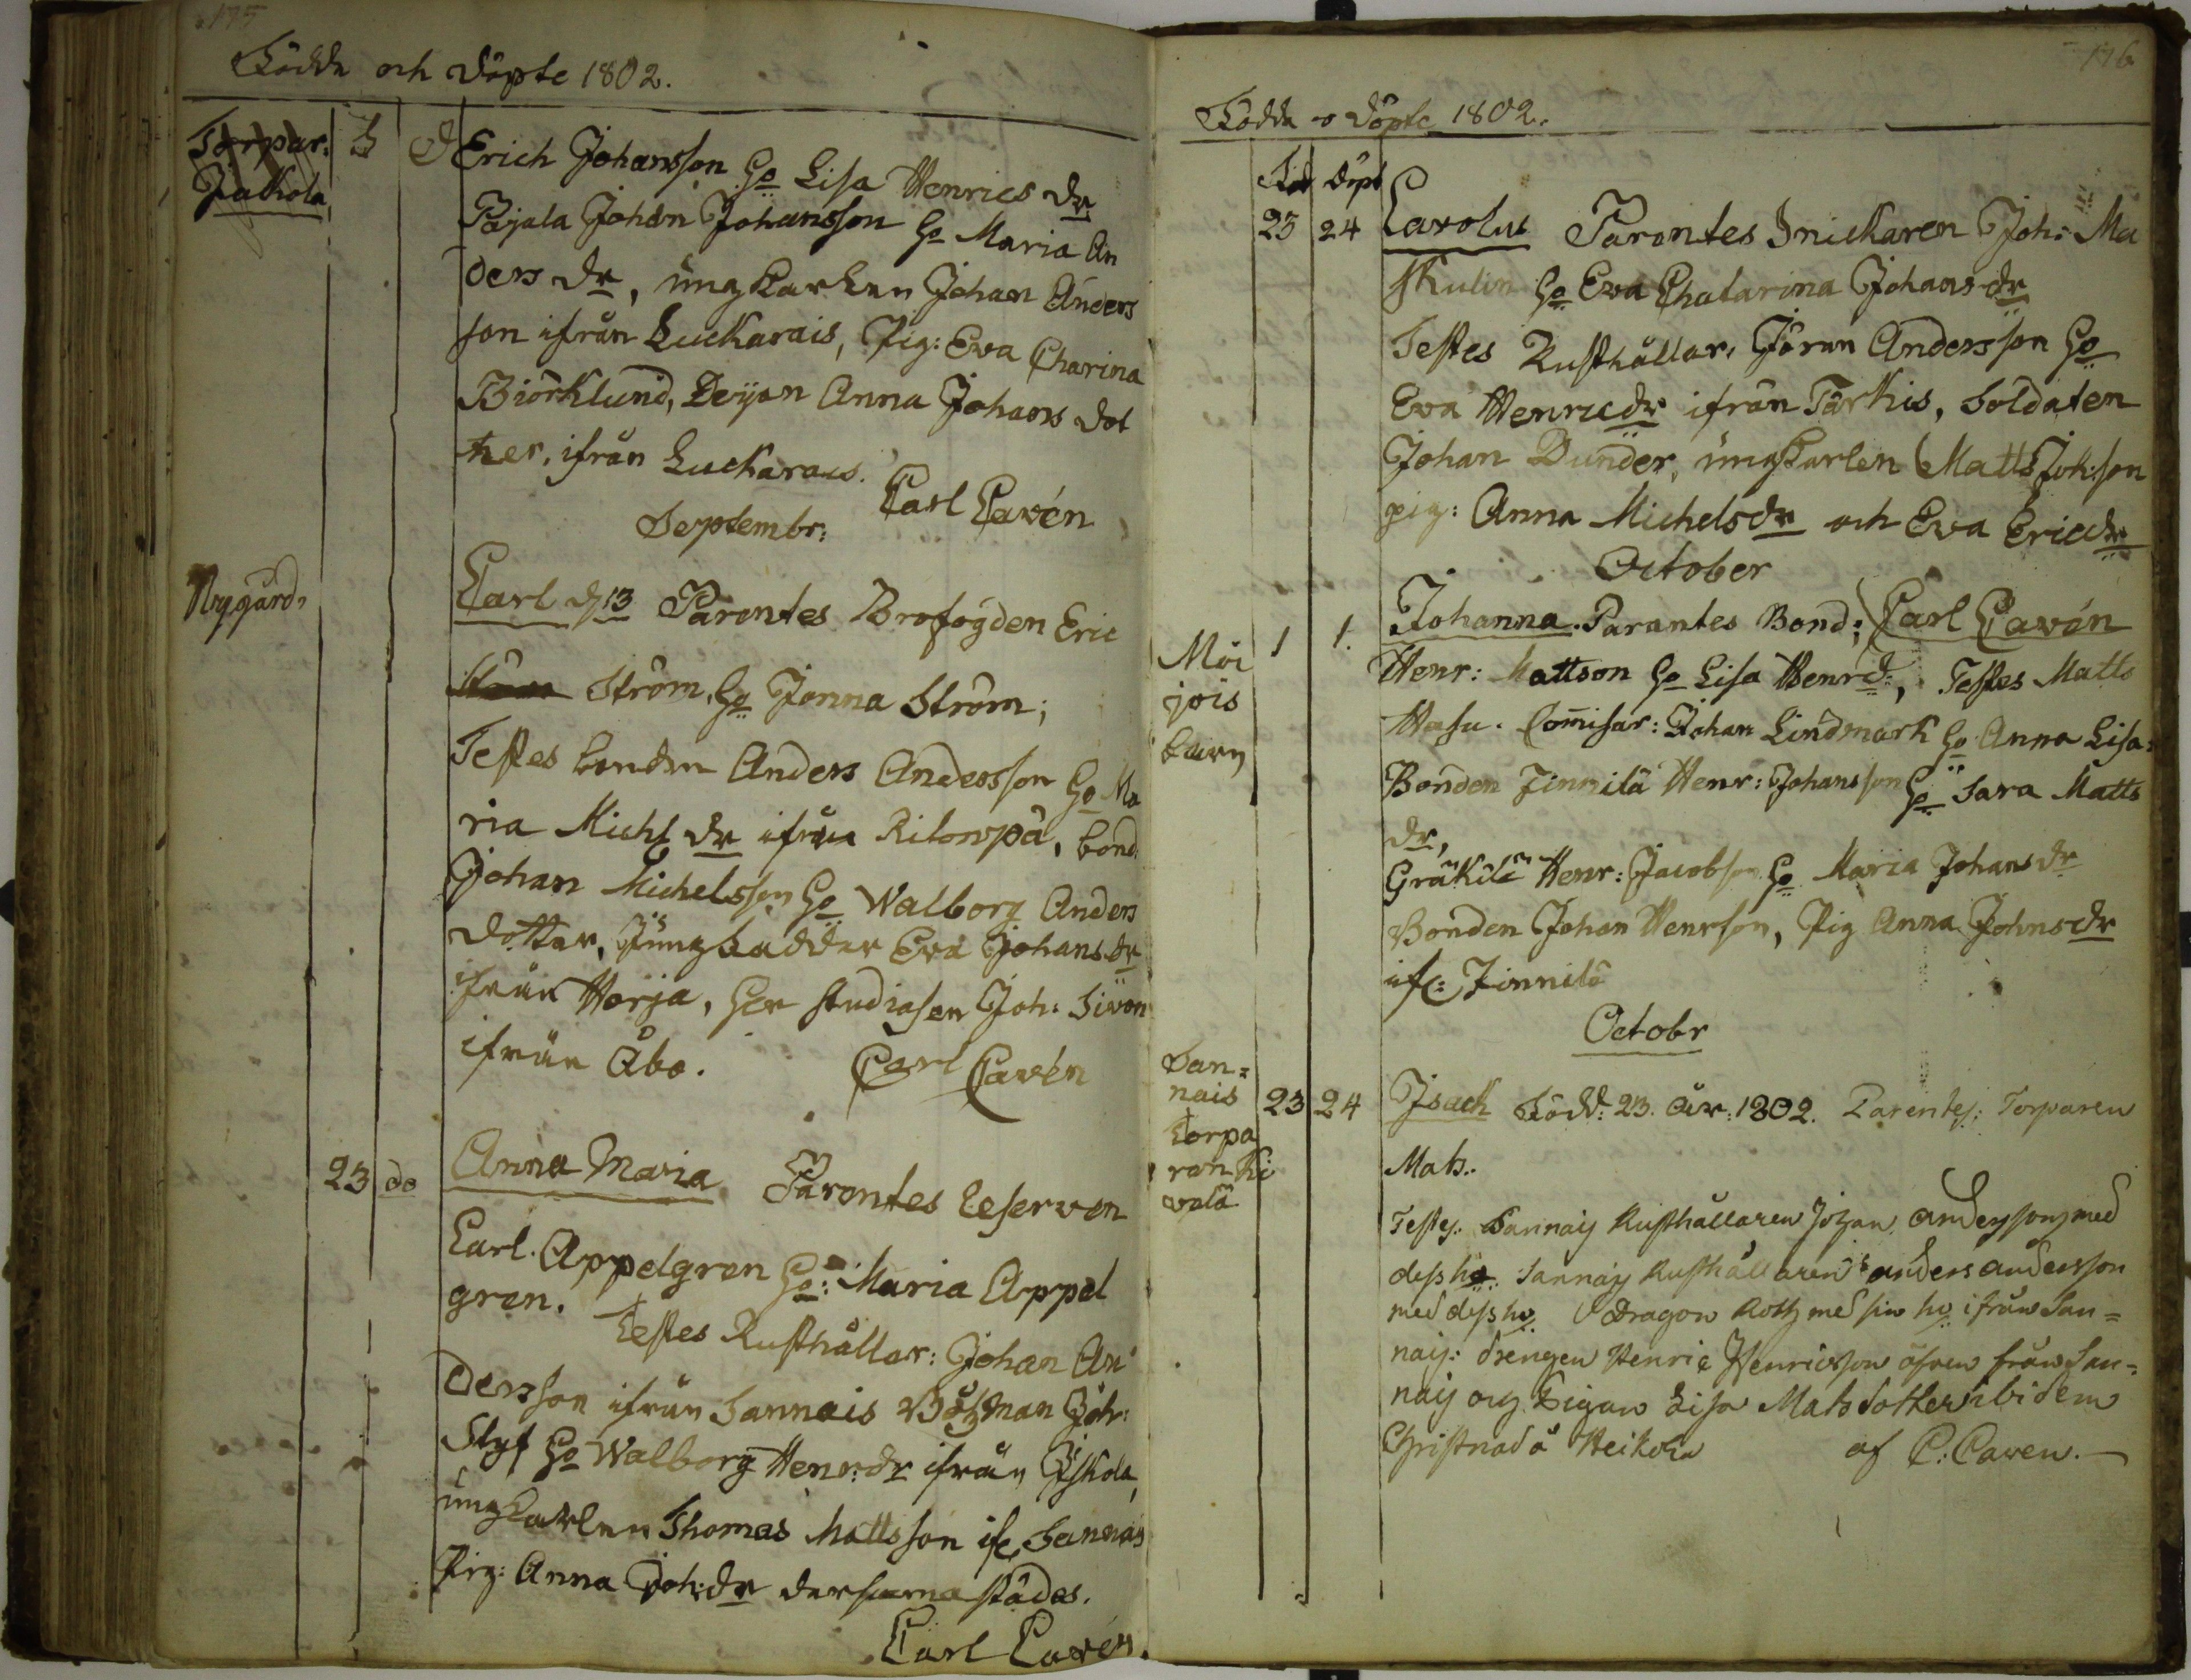 175
Födde och döpte 1802.
Torpar:
Jakkola
3
Erich Johansson Ho Lisa Henrics dr
Pajala Johan Johansson Ho Maria An
ders dr, ungkarlen Johan Anders
son ifrån Luckarais, Pig: Eva Charina
Biörklund, Deijan Anna Johans dot
ter, ifrån Luckarais.
Carl Cavén
Septembr:
Nygård,
Carl d 13 Parentes Brofogden Eric
Ström, Ho Jonna Ström;
Testes bonden Anders Andersson Ho Ma
ria Michs dr ifrån Ritovpä, bond:
Johan Michelsson Ho Walborg Anders
dotter, Jungkadder Eva Johans dr
ifrån Horja, Her studiosen Joh: Siven
ifrån Åbo.
Carl Cavén
23 do
Anna Maria Parentes Reserven
Carl Appelgren Ho: Maria Appel
gren.
Testes Rusthållar: Johan An
dersson ifrån Sannais Båtzman Joh:
Styf Ho Walborg Henr: dr ifrån Iskola,
ungkarlen Thomas Mattsson ifr Sannais
Pig: Anna Joh: dr dersamastädes.
Carl Cavén.
176
Födda o döpte 1802.
Föd döpt
23 24
Carolus Parentes Snickaren Joh: Ma
skulin Ho Eva Chatarina Johansdr
Testes Rusthållar, Jöran Andersson Ho
Eva Henricdr ifrån Tarkis, Soldaten
Johan Dunder, ungkarlen Matts Joh:son
pig: Anna Michelsdr och Eva Ericdr
October
Carl Cavén
Moi
jois
barn
1 1.
Johanna. Parantes Bond:
Henr: Mattson Ho Lisa Henrd:, Testes Matts
Hasu. Comisar: Johan Lindmark Ho Anna Lisa:
Bonden Finnilä Henr: Johansson Ho Sara Matts
dr,
Gräkilä Henr: Jacobson Ho Maria Johansdr
Bonden Johan Henrson, Pig Anna Johnsdr
ifr: Finnilä
Octobr
San=
nais
torpa
ren Ki
valä
23 24
Isach Född: 23. Oir: 1802. Parentes: Torparen
Mats..
Testes: Sannais Rusthållaren Johan Andersson med
dess ho: Sannais Rusthållaren Anders Andersson
med dess ho Dragon Roth med sin ho ifrån San=
nais: drengen Henric Henricsson äfven från San=
nais och Pigan Lisa Mats dotter ibidem
Christnad å Heikola af C: Caven.